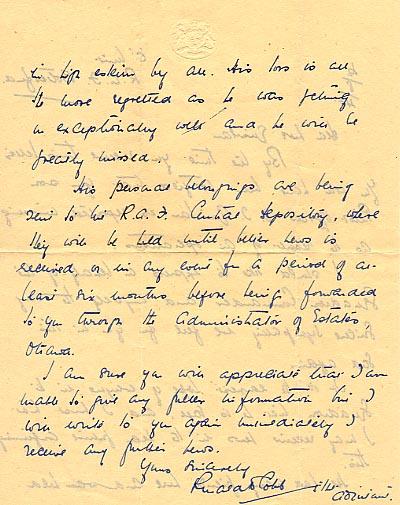 in high esteem by all. His loss is all
the more regretted as he was fitting
in exceptionally well and he will be
greatly missed.
His personal belongings are being
sent to the R.A.F. Central Depository, where
they will be held until better news is
received or in any event for a period of at
least six months before being forwarded
to you through the Administrator of Estates,
Ottawa.
I am sure you will appreciate that I am
unable to give any fuller information but I
will write to you again immediately I
receive any further news.
Yours Sincerely